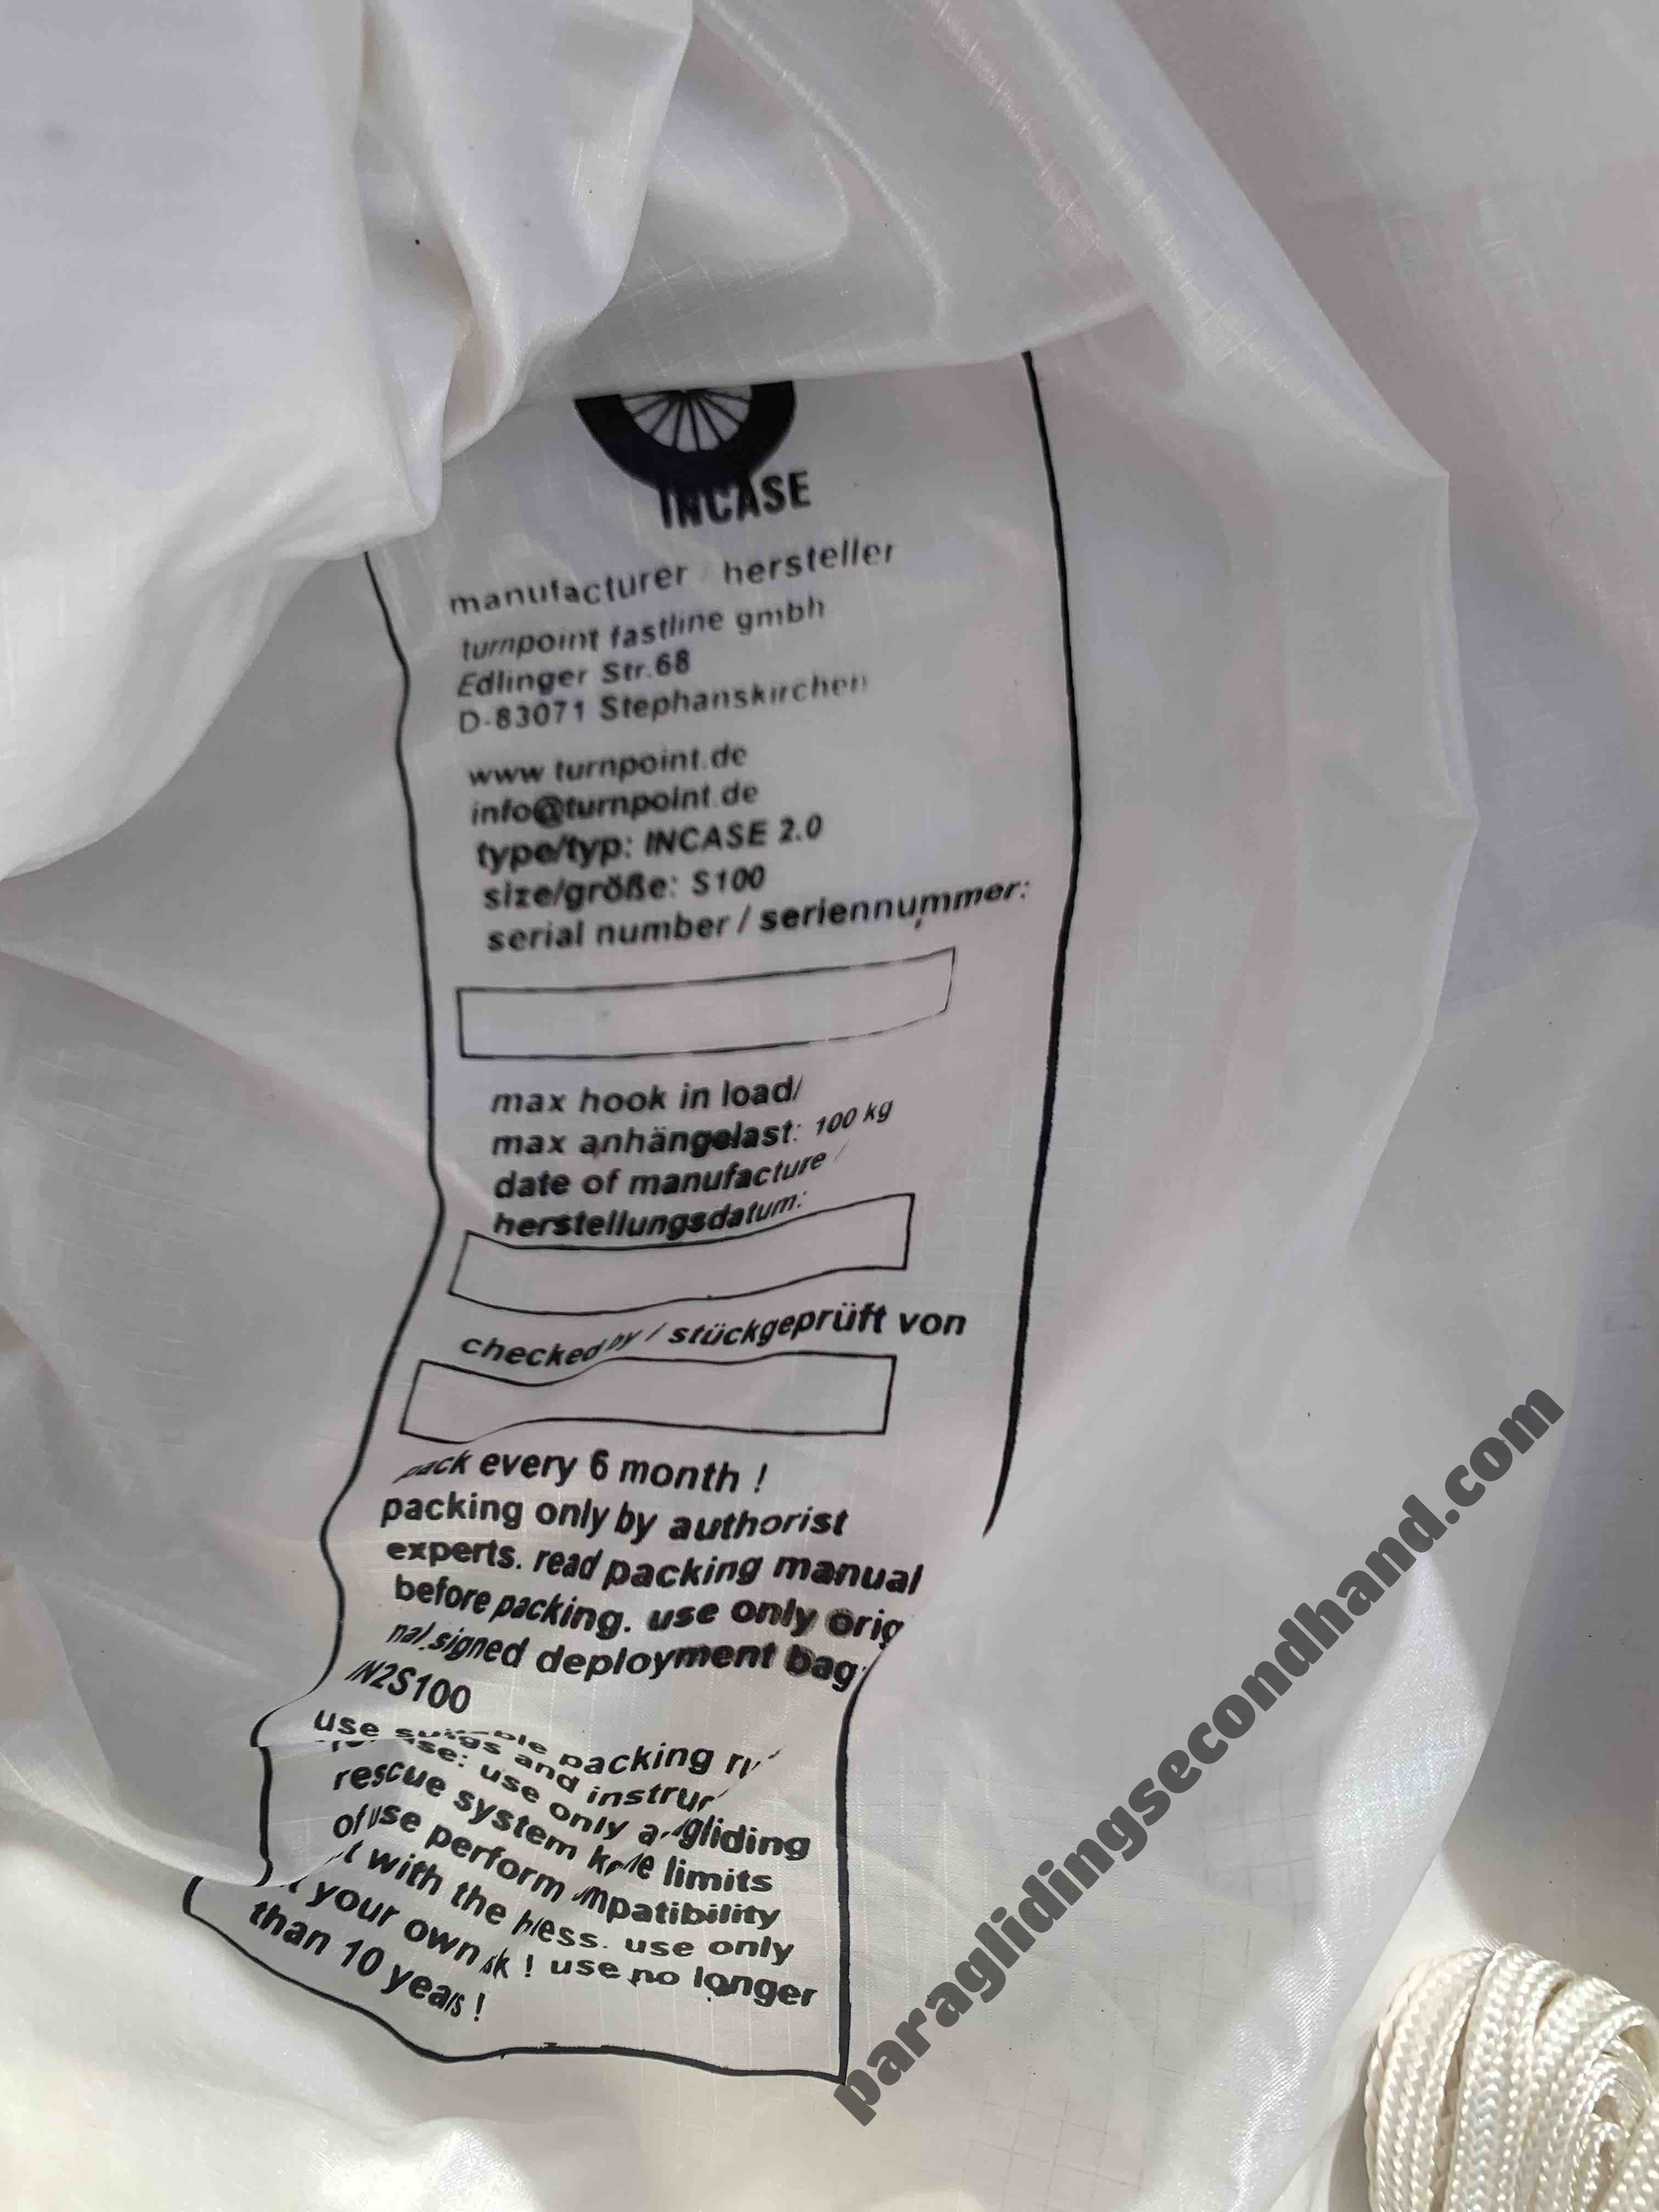 INCASE
manufacturer / hersteller
turnpoint fastline gmbh
Edlinger Str.68
D-83071 Stephanskirchen
www.turnpoint.de
info@turnpoint.de
type/typ: INCASE 2.0
size/größe: S100
serial number / seriennummer:
max hook in load/
max anhängelast: 100 kg
date of manufacture /
herstellungsdatum:
checked by / stückgeprüft von
every 6 month !
packing only by authorist
experts. read packing manual
before packing. use only orig
nal signed deployment bag
IN2S100
use packing
and
use only gliding
rescue system limits
of use perform
with the use only
your own ! use no longer
than 10 years !
paraglidingsecondhand.com